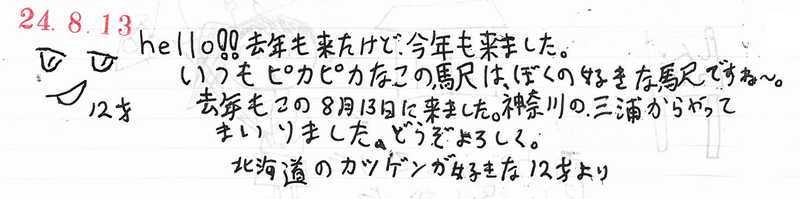 24.8.13
hello!!去年も来たけど、今年も来ました。
いつもピカピカなこの駅は、ぼくの好きな駅ですね〜。
12才
去年もこの8月13日に来ました。神奈川の三浦からやって
まいりました。どうぞよろしく。
北海道のカツゲンが好きな12才より